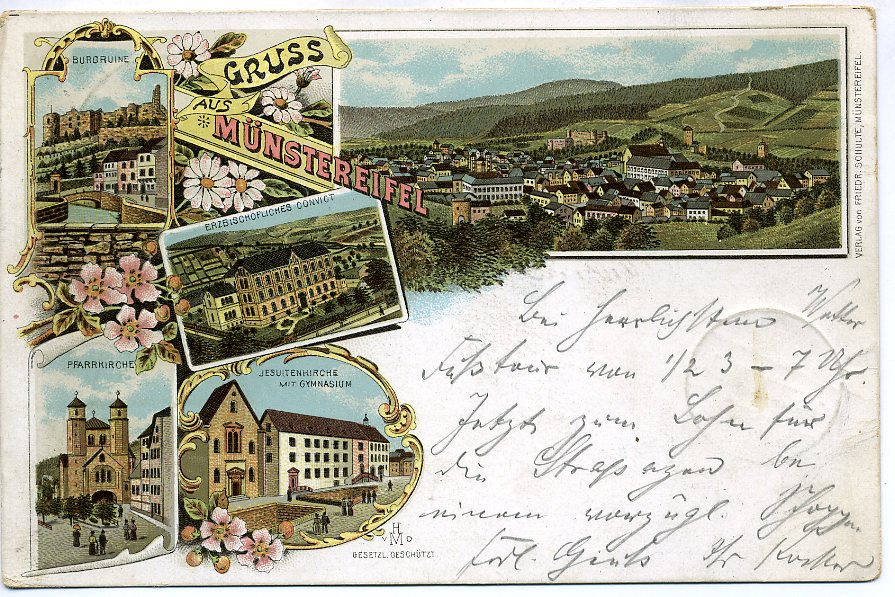 BURGRUINE
GRUSS
AUS
MÜNSTEREIFEL
ERZBISCHÖFLICHES CONVICT
PFARRKIRCHE
JESUITENKIRCHE
MIT GYMNASIUM
H
V M D
GESETZL. GESCHÜTZT.
VERLAG von FRIEDR. SCHULTE, MÜNSTEREIFEL.
Bei herrlichstem Wetter
Fußtour von 1/2 3 – 7 Uhr.
Jetzt zum Lohn für
die Strapazen bei
einem vorzügl. Schoppen
Frdl. Gruß Ihr